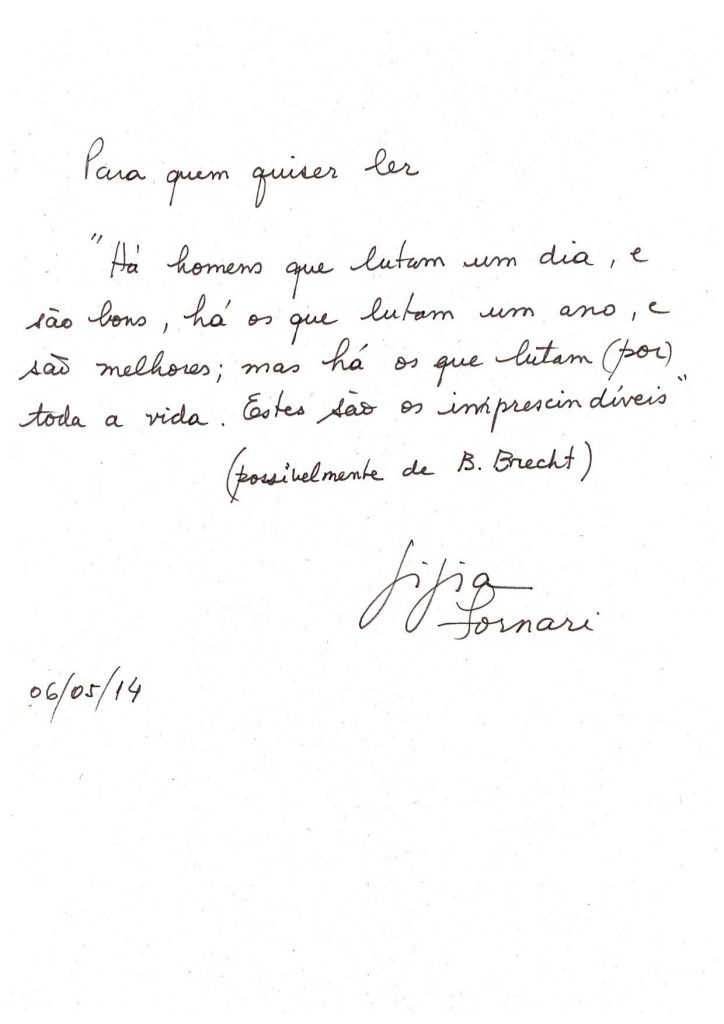 Para quem quiser ler
"Há homens que lutam um dia, e
são bons, há os que lutam um ano, e
são melhores; mas há os que lutam (por)
toda a vida. Estes são os imprescindíveis"
(possivelmente de B. Brecht)
Fornari
06/05/14